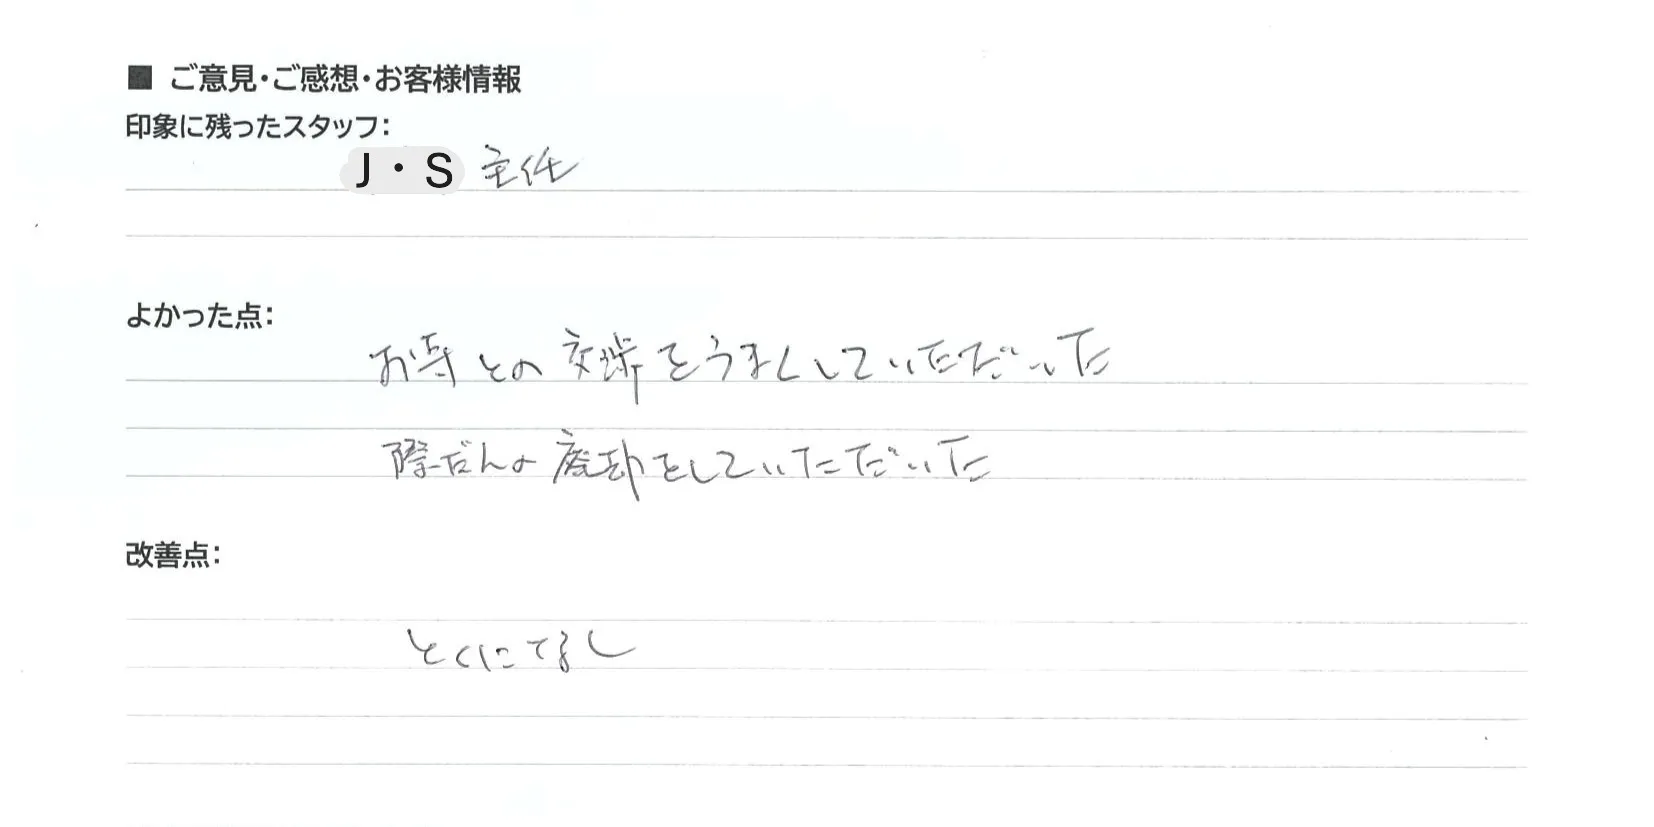 ■ ご意見・ご感想・お客様情報
印象に残ったスタッフ:
J・S 主任
よかった点:
お寺との交渉をうまくしていただいた
祭だんの廃却をしていただいた
改善点:
とくになし